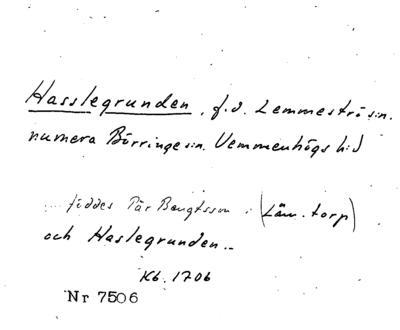 Hasslegrunden, f.d. Lemmeströ sn.
numera Börringe sn. Vemmenhögs hd
... föddes Pär Bengtsson i (Läm. torp)
och Haslegrunden..
Kb. 1706
Nr 7506